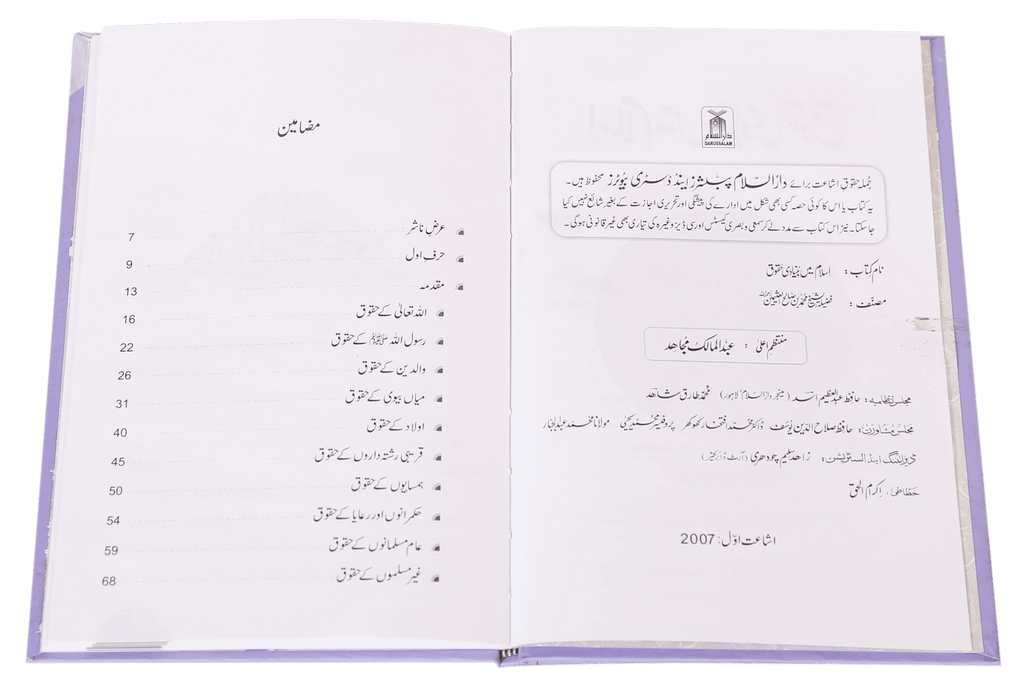 دارالسلام
DARUSSALAM
جُملہ حقوقِ اشاعت برائے دارُالسلام پبلشرز اینڈ ڈسٹری بیوٹرز محفوظ ہیں۔
یہ کتاب یا اس کا کوئی حصہ کسی بھی شکل میں ادارے کی پیشگی اور تحریری اجازت کے بغیر شائع نہیں کیا
جاسکتا۔ نیز اس کتاب سے مدد لے کر سمعی و بصری کیسٹس اور سی ڈیز وغیرہ کی تیاری بھی غیر قانونی ہوگی۔
نام کتاب : اسلام میں بنیادی حقوق
مصنّف : فضیلۃ الشیخ محمد بن صالح العثیمین رحمہ اللہ
منتظمِ اعلیٰ : عبدالمالک مجاہد
مجلس انتظامیہ : حافظ عبدالعظیم اسد (مینجر دارالسلام لاہور) محمد طارق شاہد
مجلس مشاورت : حافظ صلاح الدین یوسف ڈاکٹر محمد افتخار کھوکھر پروفیسر محمد یحییٰ مولانا محمد عبدالجبار
ڈیزائننگ اینڈ السٹریشن : زاہد سلیم چودھری (آرٹ ڈائریکٹر)
خطاطی : اکرام الحق
اشاعت اوّل : 2007
مضامین
عرضِ ناشر 7
حرفِ اول 9
مقدمہ 13
اللہ تعالیٰ کے حقوق 16
رسول اللہ ﷺ کے حقوق 22
والدین کے حقوق 26
میاں بیوی کے حقوق 31
اولاد کے حقوق 40
قریبی رشتہ داروں کے حقوق 45
ہمسایوں کے حقوق 50
حکمرانوں اور رعایا کے حقوق 54
عام مسلمانوں کے حقوق 59
غیر مسلموں کے حقوق 68